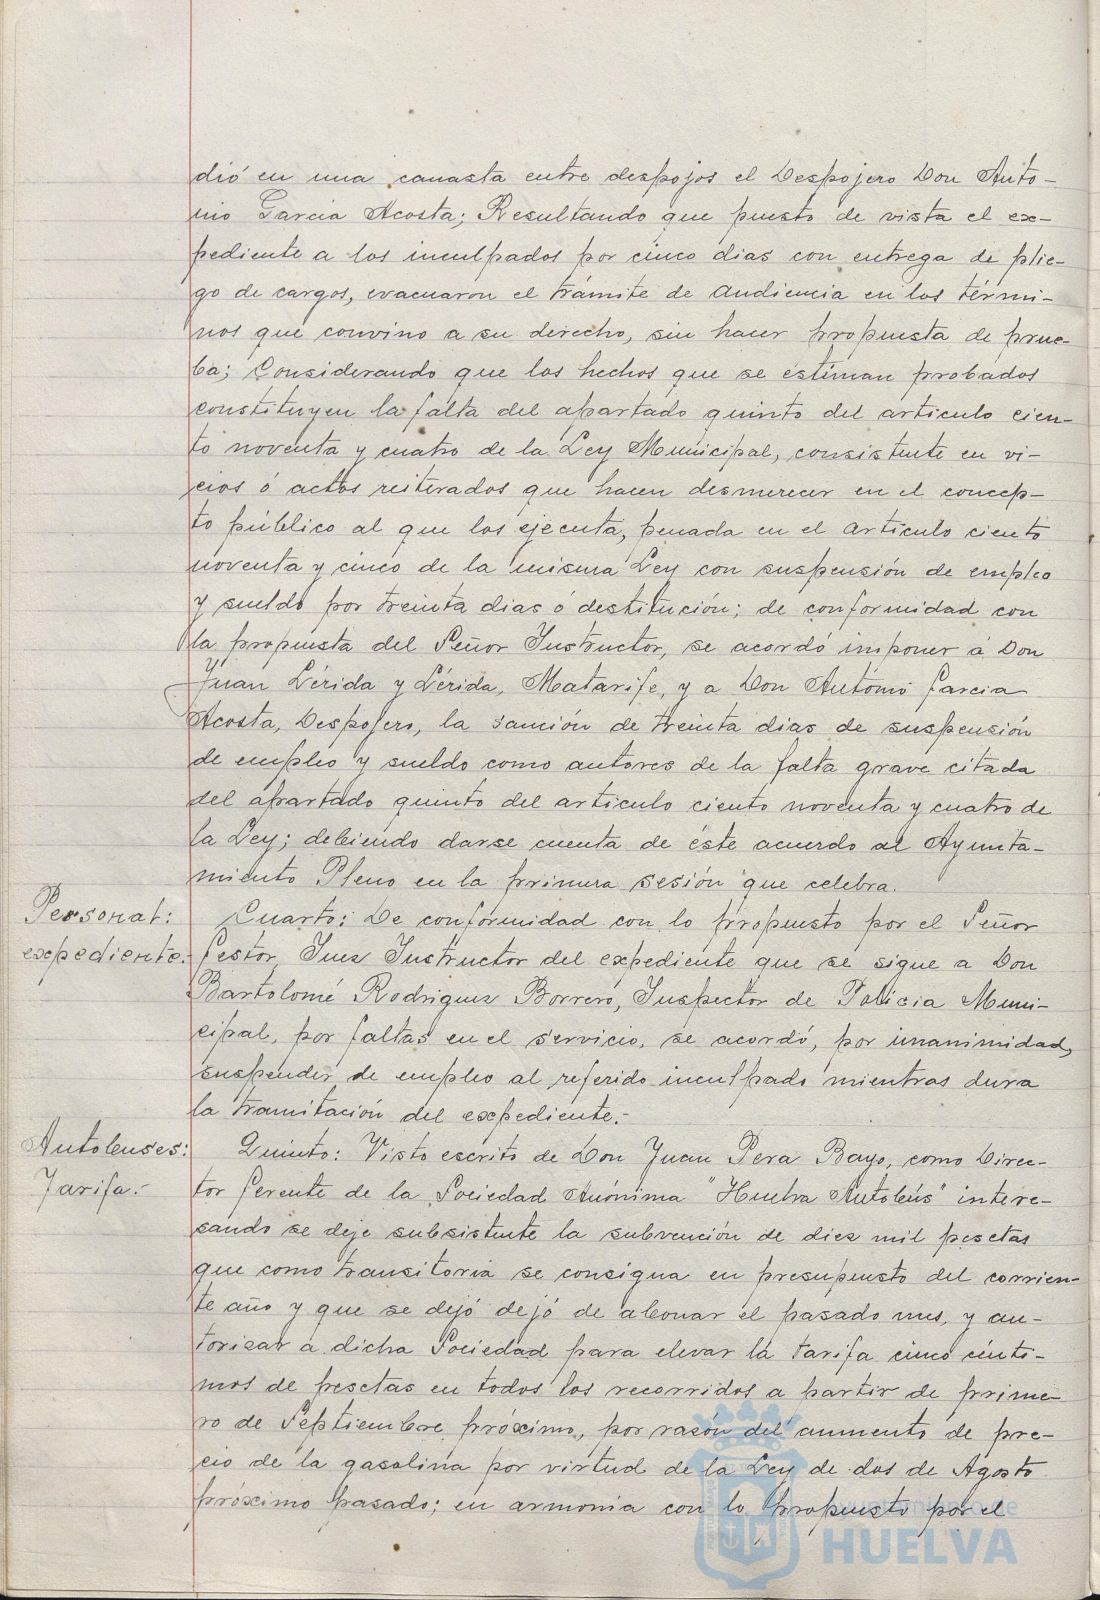 dió en una canasta entre despojos el Despojero Don Anto-
nio García Acosta; Resultando que puesto de vista el ex-
pediente a los inculpados por cinco dias con entrega de plie-
go de cargos, evacuaron el trámite de audiencia en los térmi-
nos que convino a su derecho, sin hacer propuesta de prue-
ba; Considerando que los hechos que se estiman probados
constituyen la falta del apartado quinto del artículo cien-
to noventa y cuatro de la Ley Municipal, consistente en vi-
cios ó actos reiterados que hacen desmerecer en el concep-
to público al que los ejecuta, penada en el artículo ciento
noventa y cinco de la misma Ley con suspensión de empleo
y sueldo por treinta dias ó destitución; de conformidad con
la propuesta del Señor Instructor, se acordó imponer á Don
Juan Lérida y Lérida, Matarife, y a Don Antonio García
Acosta, Despojero, la sanción de treinta dias de suspensión
de empleo y sueldo como autores de la falta grave citada
del apartado quinto del artículo ciento noventa y cuatro de
la Ley; debiendo darse cuenta de éste acuerdo al Ayunta-
miento Pleno en la primera sesión que celebra.
Personal:
expediente.-
Cuarto: De conformidad con lo propuesto por el Señor
Gestor Juez Instructor del expediente que se sigue a Don
Bartolomé Rodriguez Borrero, Inspector de Policia Muni-
cipal, por faltas en el servicio, se acordó, por unanimidad,
suspender de empleo al referido inculpado mientras dura
la tramitación del expediente.-
Autobuses:
Tarifa.-
Quinto: Visto escrito de Don Juan Pera Bayo, como Direc-
tor Gerente de la Sociedad Anónima "Huelva Autobús" intere-
sando se deje subsistente la subvención de diez mil pesetas
que como transitoria se consigna en presupuesto del corrien-
te año y que se dejó dejó de abonar el pasado mes, y au-
torizar a dicha Sociedad para elevar la tarifa cinco cénti-
mos de pesetas en todos los recorridos a partir de prime-
ro de Septiembre próximo, por razón del aumento de pre-
cio de la gasolina por virtud de la Ley de dos de Agosto
próximo pasado; en armonia con lo propuesto por el
Ayuntamiento de
HUELVA